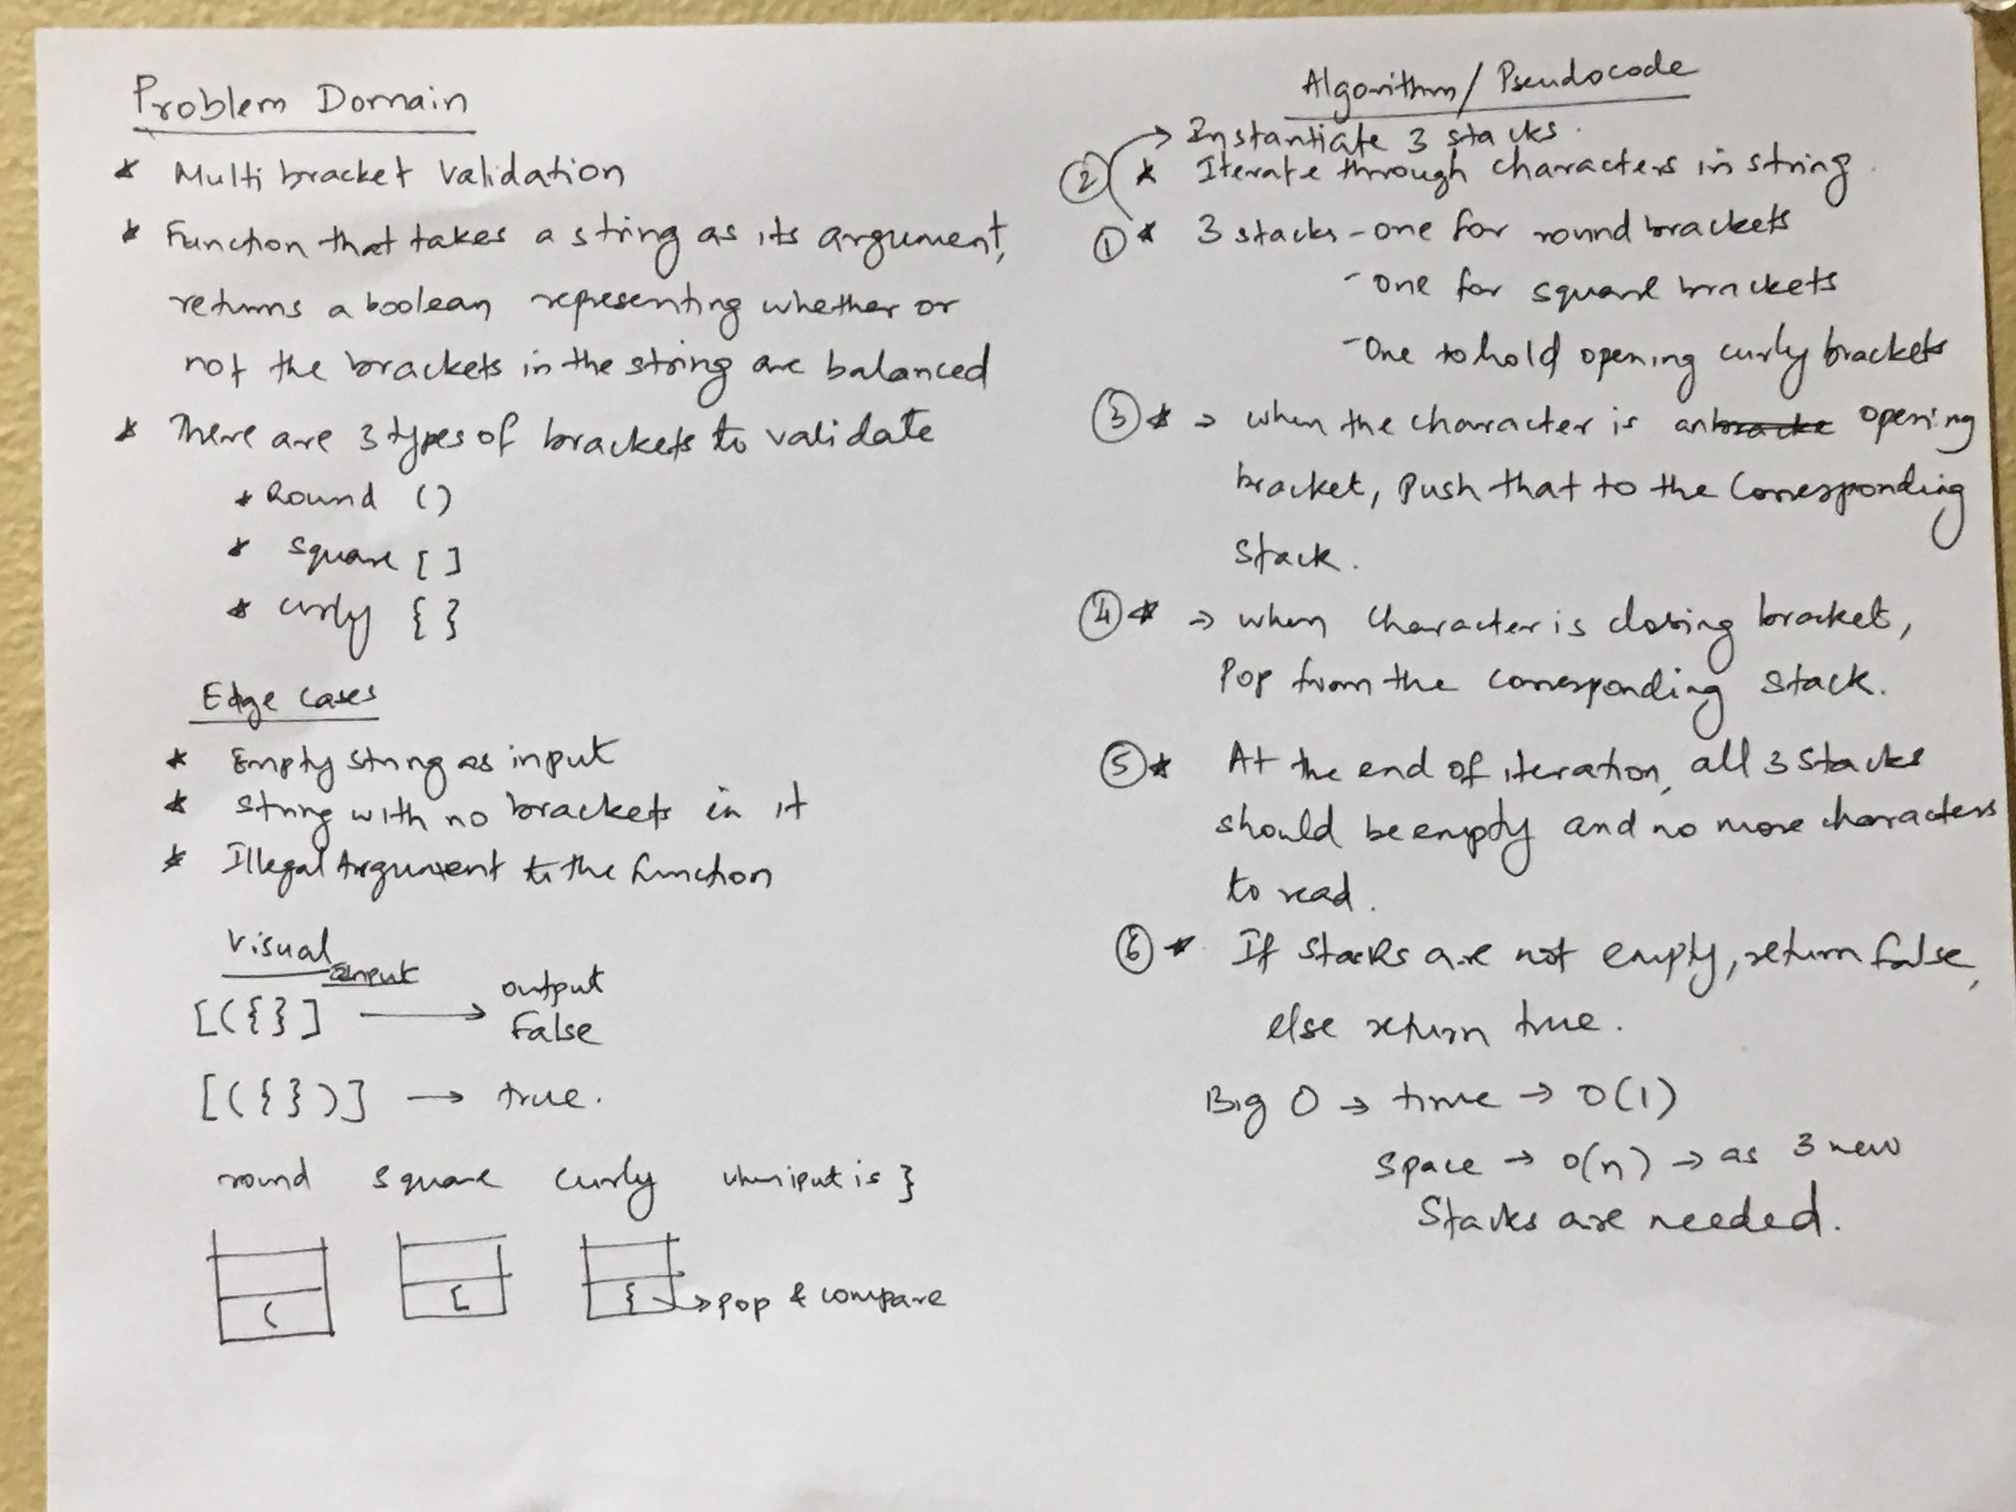 Problem Domain
* Multi bracket Validation
* Function that takes a string as its argument,
returns a boolean representing whether or
not the brackets in the string are balanced
* There are 3 types of brackets to validate
* Round ()
* square [ ]
* curly { }
Edge cases
* Empty string as input
* string with no brackets in it
* Illegal Argument to the function
Visual
input
output
[({}] → False
[({})] → true.
round square curly when iput is }
( [ { → pop & compare
Algorithm / Pseudocode
→ Instantiate 3 stacks.
② * Iterate through characters in string.
① * 3 stacks - one for round brackets
- one for square brackets
- One to hold opening curly brackets
③ * → when the character is an opening
bracket, Push that to the Corresponding
Stack.
④ * → when character is closing bracket,
Pop from the corresponding stack.
⑤ * At the end of iteration, all 3 stacks
should be empty and no more characters
to read.
⑥ * If stacks are not empty, return false,
else return true.
Big O → time → O(1)
Space → O(n) → as 3 new
Stacks are needed.